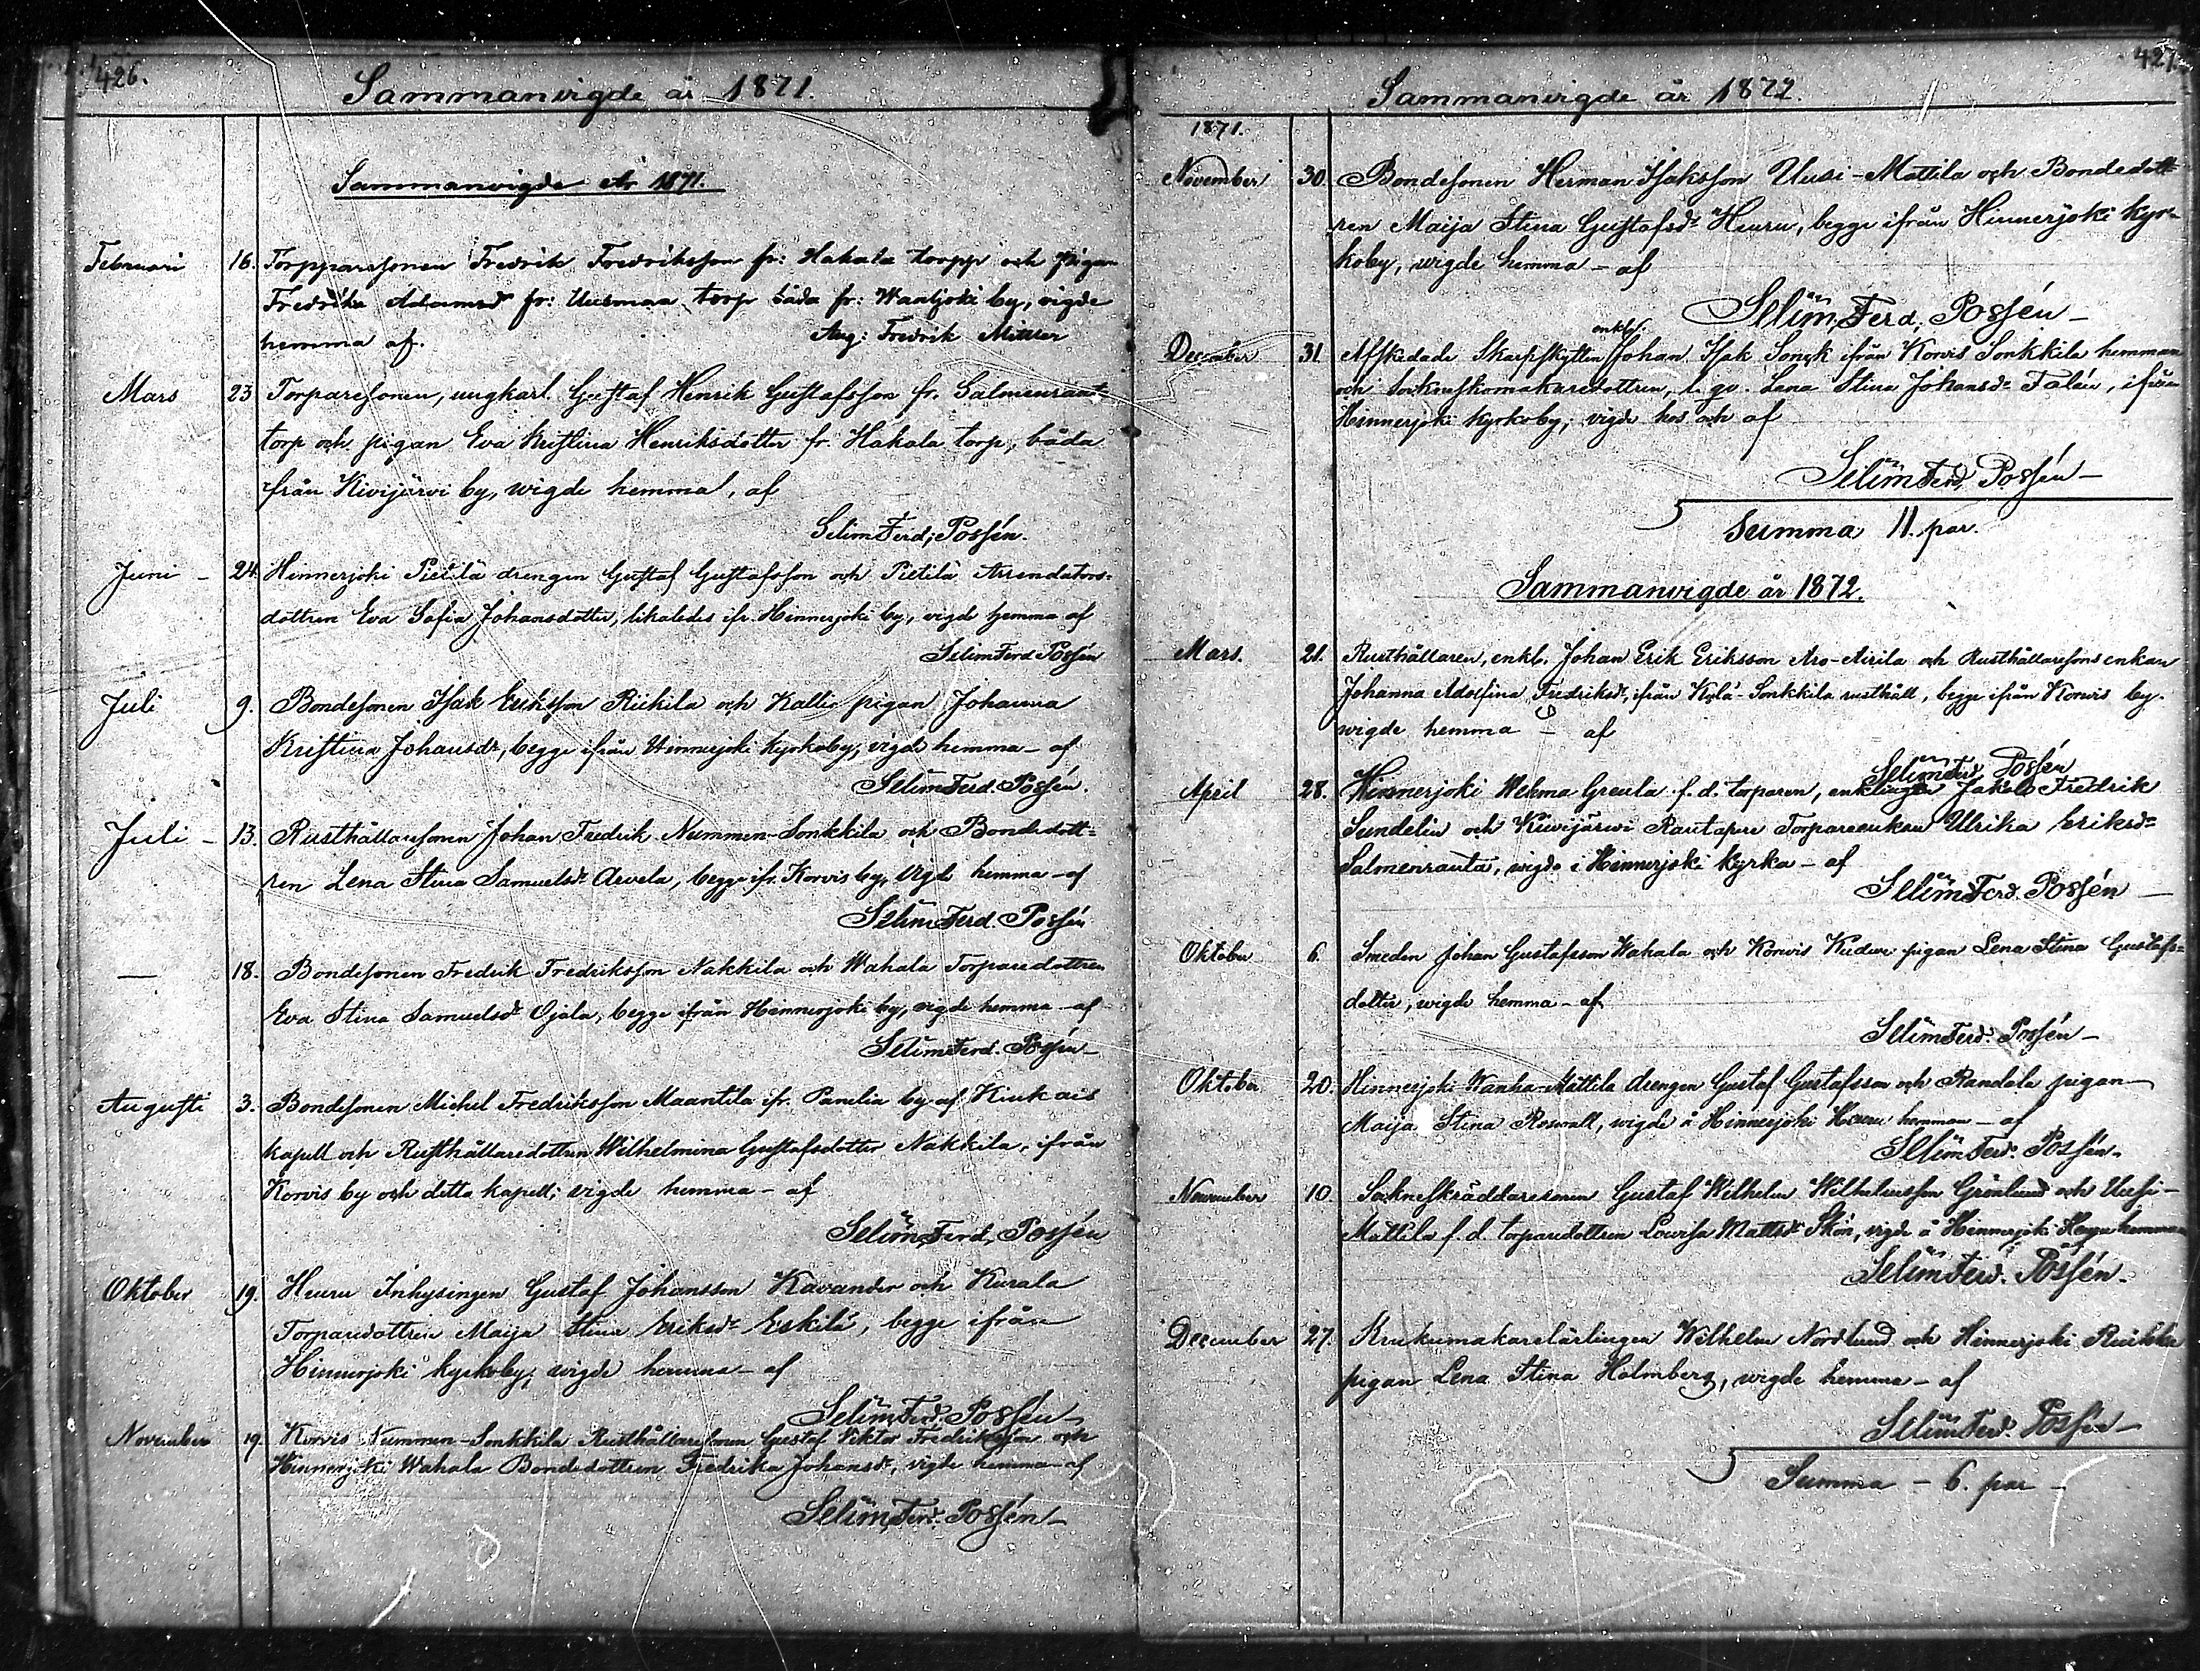 426.
Sammanvigde år 1871.
Sammanvigde År 1871.
Februari 16. Torpparesonen Fredrik Fredriksson fr: Hakala torpp och pigan
Fredrika Adamsdr fr: Uusmaa torp båda fr: Wantjoki by, vigde
hemma af. Aug: Fredrik
Mars 23 Torparesonen, ungkarl Gustaf Henrik Gustafsson fr. Salmensraut
torp och pigan Eva Kristina Henriksdotter fr. Hakala torp, båda
från Kivijärvi by, wigde hemma, af
Selim Ferd; Possén.
Juni – 24. Hinnerjoki Pietilä drengen Gustaf Gustafsson och Pietilä Arrendators-
dottren Eva Sofia Johansdotter, likaledes ifr. Hinnerjoki by, vigde hemma af
Selim Ferd Possén
Juli 9. Bondesonen Isak Eriksson Riikila och Kallio pigan Johanna
Kristina Johansdr, begge ifrån Hinnerjoki kyrkoby, vigde hemma – af
Selim Ferd. Possén.
Juli – 13. Rusthållaresonen Johan Fredrik Nummen-Sonkkila och Bondedott-
ren Lena Stina Samuelsdr Arvela, begge ifr. Korvis by, vigde hemma – af
Selim Ferd. Possén
— 18. Bondesonen Fredrik Fredriksson Nakkila och Wahala Torparedottren
Eva Stina Samuelsdr Ojala, begge ifrån Hinnerjoki by, vigde hemma – af
Selim Ferd. Possén –
Augusti 3. Bondesonen Michel Fredriksson Maantila ifr. Panelia by af Kiukais
kapell och Rusthållaredottren Wilhelmina Gustafsdotter Nakkila, ifrån
Korvis by och detta kapell; vigde hemma – af
Selim Ferd. Possén
Oktober 19. Heuru Inhysingen Gustaf Johansson Kavander och Kurala
Torparedottren Maija Stina Eriksdr Eskilä, begge ifrån
Hinnerjoki kyrkoby, wigde hemma – af
Selim Ferd. Possén –
November 19. Korvis Nummen-Sonkkila Rusthållaresonen Gustaf Viktor Fredriksson och
Hinnerjoki Wahala Bondedottren Fredrika Johansdr, vigde hemma – af
Selim Ferd. Possén –
427.
Sammanvigde år 1872.
1871.
November 30. Bondesonen Herman Isaksson Uusi-Mattila och Bondedott-
ren Maija Stina Gustafsdr Heuru, begge ifrån Hinnerjoki kyr-
koby, wigde hemma – af
Selim Ferd. Possén –
enkl.
December 31. Afskedade Skarpskytten Johan Isak Sonck ifrån Korvis Sonkkila hemman
och Sockneskomakaredottren, Lena Stina Johansdr Talén, ifrån
Hinnerjoki kyrkoby, vigde hos och af
Selim Ferd. Possén –
Summa 11. par.
Sammanvigde år 1872.
Mars. 21. Rusthållaren, enkl. Johan Erik Eriksson Aro-Airila och Rusthållaresonsenkan
Johanna Adolfina Fredriksdr, ifrån Kylä-Sonkkila rusthåll, begge ifrån Korvis by.
wigde hemma – af
Selim Ferd. Possén
April 28. Hinnerjoki Wehma Greula f. d. torparen, enklingen Jakob Fredrik
Sundelin och Kiivijärwi Rautapere Torpareenkan Ulrika Eriksdr
Salmenrauta, wigde i Hinnerjoki kyrka – af
Selim Ferd. Possén –
Oktober 6. Smeden Johan Gustafsson Wahala och Korvis pigan Lena Stina Gustafs-
dotter, wigde hemma – af
Selim Ferd. Possén –
Oktober 20. Hinnerjoki Wanha-Mattila drengen Gustaf Gustafsson och Randala pigan
Maija Stina Roswall, wigde å Hinnerjoki Heuru hemman – af
Selim Ferd. Possén.
November 10. Sockneskräddaresonen Gustaf Wilhelm Wilhelmsson Grönlund och Uusi-
Mattila f. d. torparedottren Lovisa Mattsdr Skön, vigde å Hinnerjoki hemman
Selim Ferd. Possén.
December 27. Krukumakarelärlingen Wilhelm Nordlund och Hinnerjoki
pigan Lena Stina Holmberg, wigde hemma – af
Selim Ferd. Possén –
Summa – 6. par –